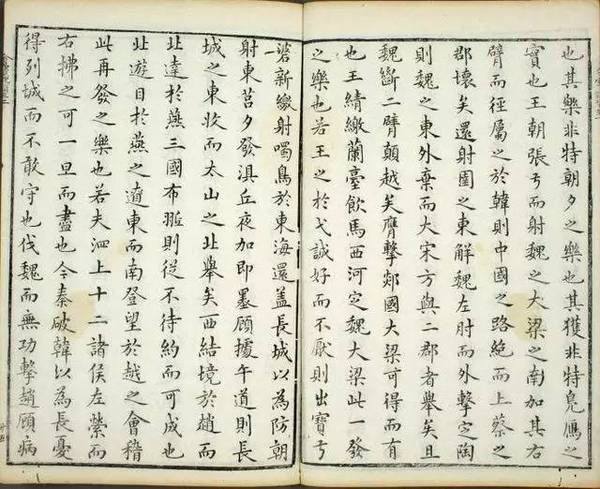 也其樂非特朝夕之樂也其獲非特鳧鴈之
實也王朝張弓而射魏之大梁之南加其右
臂而徑屬之於韓則中國之路絕而上蔡之
郡壞矣還射圉之東解魏左肘而外擊定陶
則魏之東外棄而大宋方與二郡者舉矣且
魏斷二臂顛越矣膺擊郯國大梁可得而有
也王綪繳蘭臺飲馬西河定魏大梁此一發
之樂也若王之於弋誠好而不厭則出寶弓
碆新繳射噣鳥於東海還蓋長城以為防朝
射東莒夕發浿丘夜加即墨顧據午道則長
城之東收而太山之北舉矣西結境於趙而
北達於燕三國布翄則從不待約而可成也
北遊目於燕之遼東而南登望於越之會稽
此再發之樂也若夫泗上十二諸侯左縈而
右拂之可一旦而盡也今秦破韓以為長憂
得列城而不敢守也伐魏而無功擊趙顧病